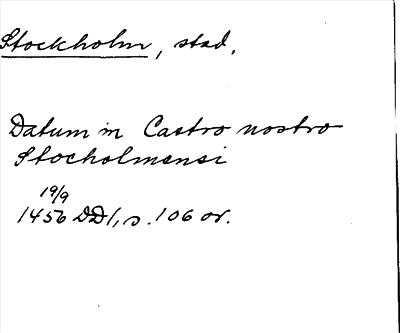 Stockholm, stad.
Datum in Castro nostro
Stocholmensi
19/9
1456 DD1, s. 106 or.